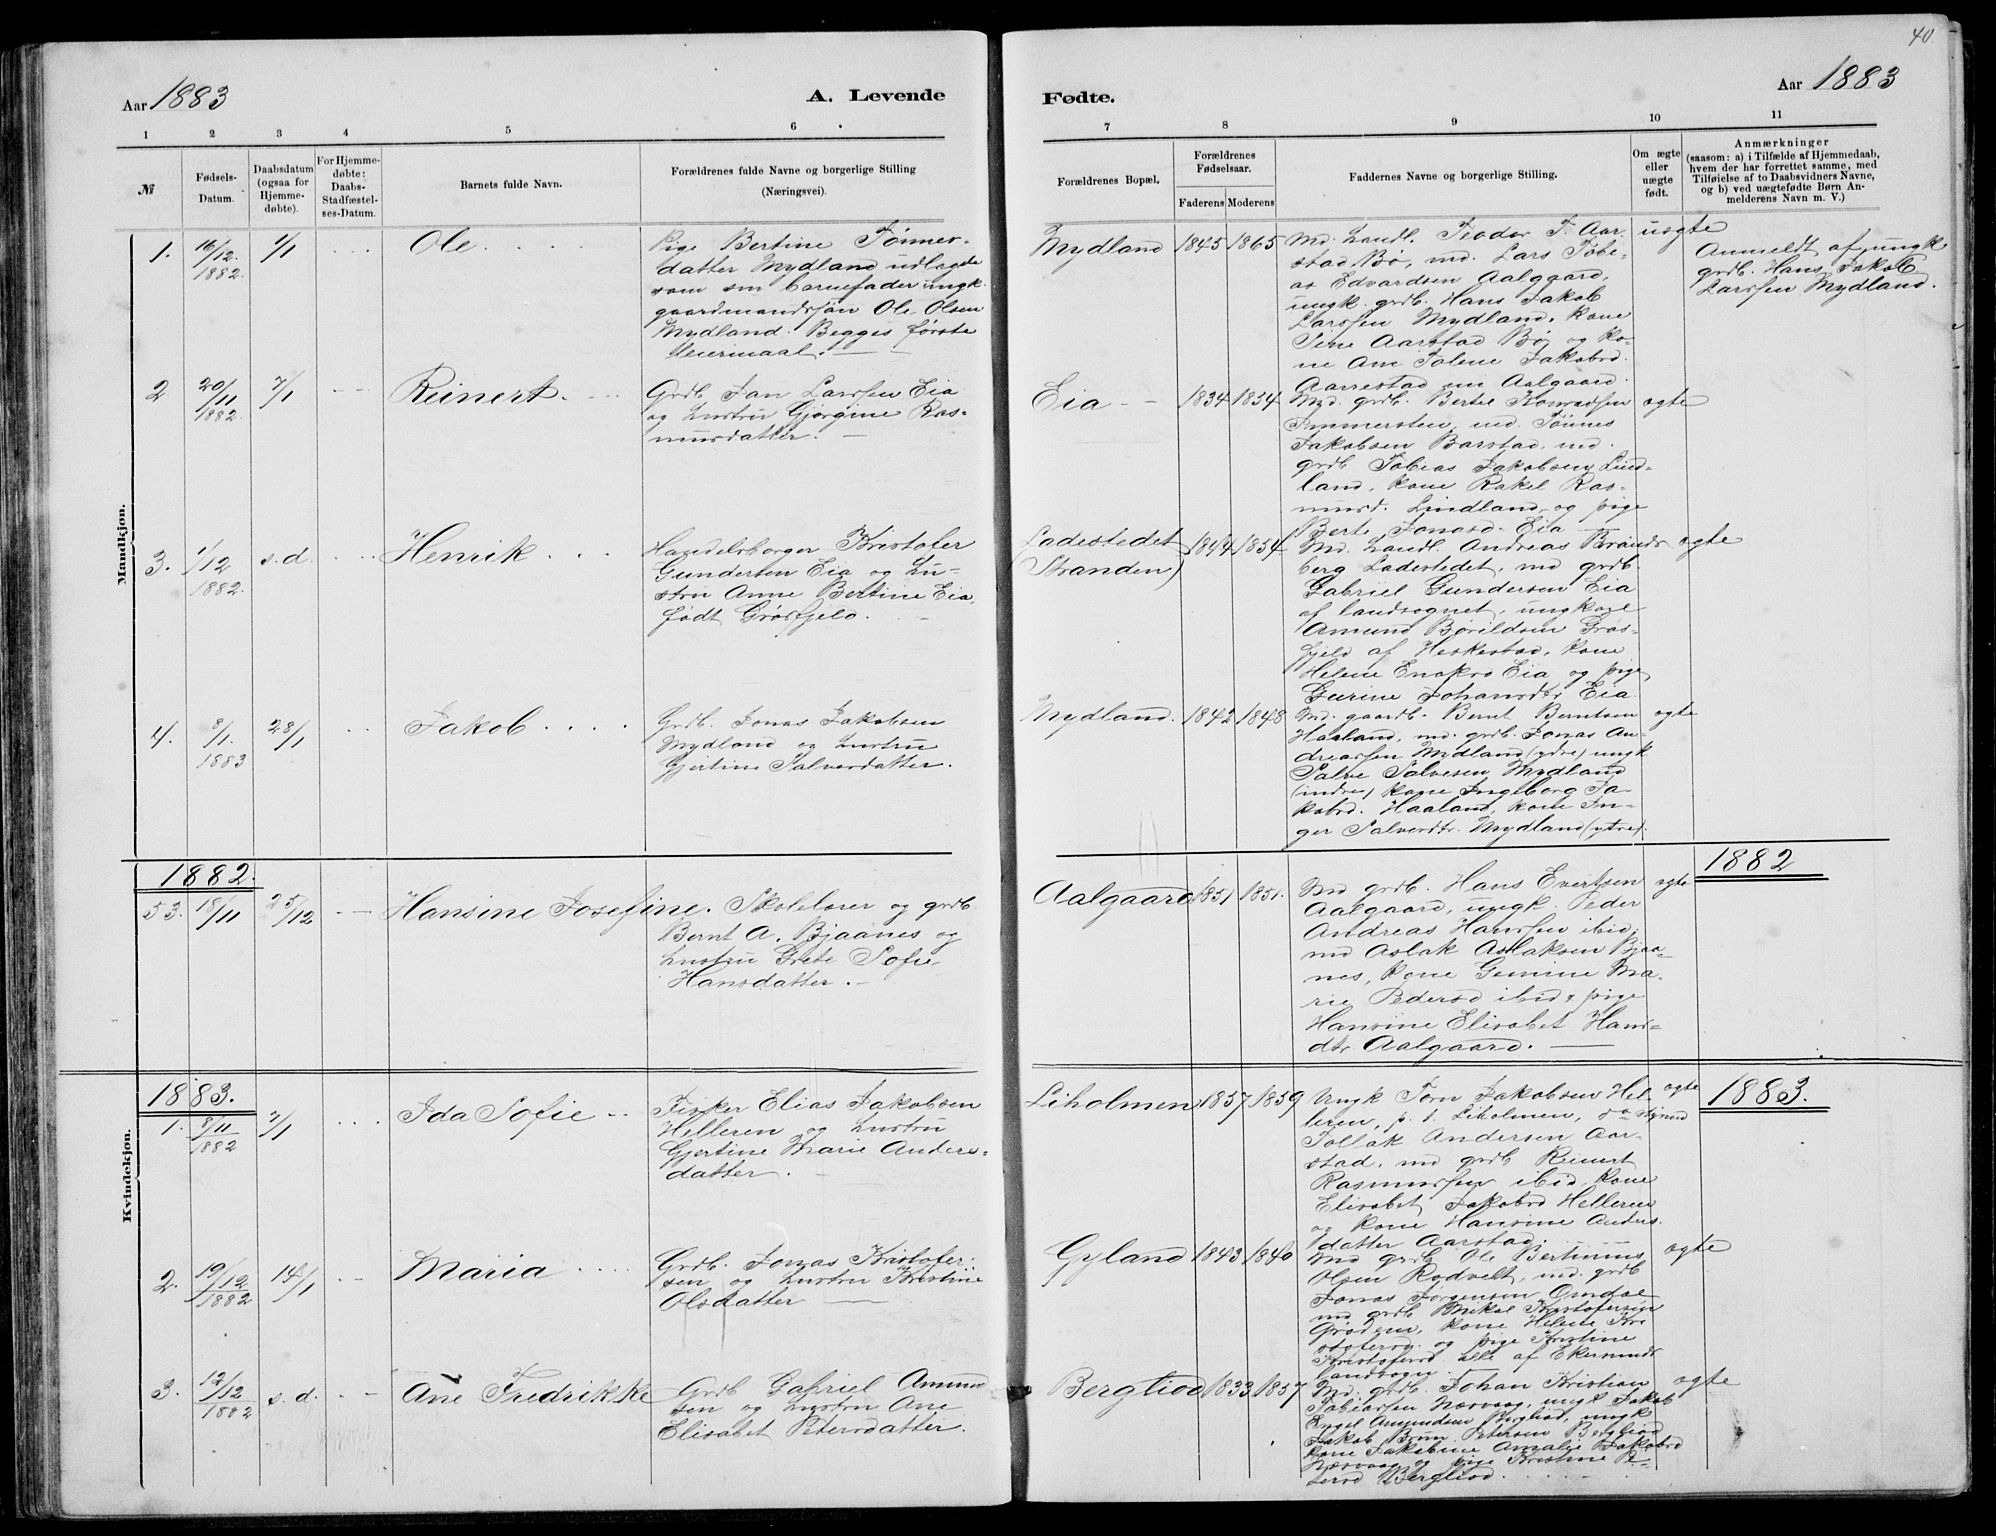 40.
Aar 1883
A. Levende
Fødte.
Aar 1883
1 2 3 4 5 6
7 8 9 10 11
№
Fødsels-
Datum.
Daabsdatum
(ogsaa for
Hjemme-
døbte).
For Hjemme-
døbte:
Daabs-
Stadfæstel-
ses-Datum.
Barnets fulde Navn.
Forældrenes fulde Navne og borgerlige Stilling
(Næringsvei).
Forældrenes Bopæl.
Forældrenes
Fødselsaar.
Faderens Moderens
Faddernes Navne og borgerlige Stilling.
Om ægte
eller
uægte
født.
Anmærkninger
(saasom: a) i Tilfælde af Hjemmedaab,
hvem der har forrettet samme, med
Tilføielse af to Daabsvidners Navne,
og b) ved uægtefødte Børn An-
melderens Navn m. V.)
Mandkjøn.
1. 16/12 1882. 1/1 Ole
Pige Bertine Tønnes-
datter Mydland udlagde
som sin barnefader ungk.
gaardmandssøn Ole Olsen
Mydland. Begges første
leiermaal.
Mydland 1845 1865
Md. Landl. Teodor T. Aar-
stad Bø, md. Lars Tobi-
as Edvardsen Aalgaard,
ungk. grdb. Hans Jakob
Larssen Mydland, kone
Sine Aarstad Bø og ko-
ne Ane Tolene Jakobsd.
Aarrestad nu Aalgaard.
uægte
Anmeldt af ungk.
grdb. Hans Jakob
Larssen Mydland.
2 20/11 1882. 7/1 Reinert.
Grdb. Jan Larssen Eia
og hustru Gjørgine Ras-
musdatter.
Eia 1834 1834
Md. grdb. Bertel Konradsen
Immersten, md. Tønnes
Jakobsen Barstad, md.
grdb. Tobias Jakobsen Lind-
land, kone Rakel Ras-
musd. Lindland og pige
Berte Jonasd. Eia
ægte
3. 1/12 1882. s. d. Henrik
Handelsborger Kristofer
Gundersen Eia og hu-
stru Anne Bertine Eia,
født Grøsfjeld.
Ladestedet
(Stranden)
1844 1854
Md. Landl. Andreas Brands-
berg Ladestedet, md grdb.
Gabriel Gundersen Eia
af landsognet, ungkarl
Amund Børildsen Grøs-
fjeld af Heskestad, kone
Helene Enoksd Eia og pige
Gurine Johansdtr. Eia.
ægte
4. 8/1. 1883 28/1 Jakob
Grdb. Jonas Jakobsen
Mydland og hustru
Gjertine Salvesdatter.
Mydland. 1842 1848
Md. gaardb. Bernt Berntsen
Haaland, md. grdb. Jonas An-
dreassen Mydland (ydre) ungk
Salve Salvesen Mydland
(indre) kone Ingeborg Ja-
kobsd. Haaland, kone In-
ger Salvesdtr. Mydland (ytre).
ægte
1882.
1882
53. 18/11 25/12 Hansine Josefine.
Skolelærer og grdb.
Bernt A. Bjaanes og
hustru Grete Sofie
Hansdatter.
Aalgaard 1851 1851.
Md grdb. Hans Evertsen
Aalgaard, ungk. Peder
Andreas Hanssen ibid,
md Aslak Aslaksen Bjaa-
nes, kone Gemine Ma-
rie Pedersd ibid & pige
Hansine Elisabet Hans-
dtr Aalgaard.
ægte
Kvindekjøn.
1883.
1883.
1. 8/11 1882 7/1 Ida Sofie
Fisker Elias Jakobsen
Helleren og hustru
Gjertine Marie Anders-
datter.
Liholmen 1857 1859
Ungk Torn Jakobsen Hel-
leren, p. t. Liholmen,
Tollak Andersen Aar-
stad, md grdb Reinert
Rasmussen ibid, kone
Elisabet Jakobsd Helleren
og kone Hansine Anders-
datter Aarstad.
ægte
2. 19/12 1882 14/1 Maria
Grdb. Jonas Kristofer-
sen og hustru Kristine
Olsdatter
Gyland 1843 1840
Md grdb Ole Bertinius
Olsen Rødvelt, md. grdb
Jonas Jørgensen Omdal
md grdb Mikal Kristofersen
Grødem, kone Helene Kri-
stofersd. og pige Kristine
Kristofersd alle af Ekersunds
landsogn.
ægte
3. 12/12 1882 s. d. Ane Fredrikke
Grdb Gabriel Amund-
sen og hustru Ane
Elisabet Petersdatter.
Bergliod 1833 1857
Md. grdb. Johan Kristian
Tobiassen Nævaag, ungk Jakob
Engel Amundsen Bergliod, ungk
Jakob Brun Petersen Bergliod
kone Jakobine Amalie Jakobsd
Nævaag og pige Kristine Pe-
tersd Bergliod.
ægte